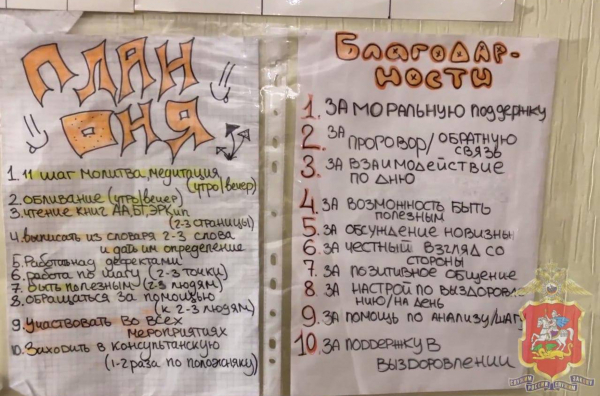 ПЛАН
ДНЯ
1. 11 шаг Молитва, медитация
(утро/вечер)
2. обливание (утро/вечер)
3. чтение книг АА, БТ, ЭРКип
(2-3 страницы)
4. выписать из словаря 2-3 слова
и дать им определение
5. Работа над дефектами
6. работа по шагу (2-3 точки)
7. быть полезным (2-3 людям)
8. обращаться за помощью
(к 2-3 людям)
9. Участвовать во всех
мероприятиях
10. Заходить в консультанскую
(1-2 раза по положняку)
БЛАГОДАР-
НОСТИ
1. ЗА МОРАЛЬНУЮ ПОДДЕРЖКУ
2. ЗА ПРОГОВОР/ОБРАТНУЮ
СВЯЗЬ
3. ЗА ВЗАИМОДЕЙСТВИЕ
ПО ДНЮ
4. ЗА ВОЗМОЖНОСТЬ БЫТЬ
ПОЛЕЗНЫМ
5. ЗА ОБСУЖДЕНИЕ НОВИЗНЫ
6 ЗА ЧЕСТНЫЙ ВЗГЛЯД СО
СТОРОНЫ
7 ЗА ПОЗИТИВНОЕ ОБЩЕНИЕ
8 ЗА НАСТРОЙ ПО ВЫЗДОРОВЛЕ
НИЮ/НА ДЕНЬ
9 ЗА ПОМОЩЬ ПО АНАЛИЗУ/ШАГУ
10 ЗА ПОДДЕРЖКУ В
ВЫЗДОРОВЛЕНИИ